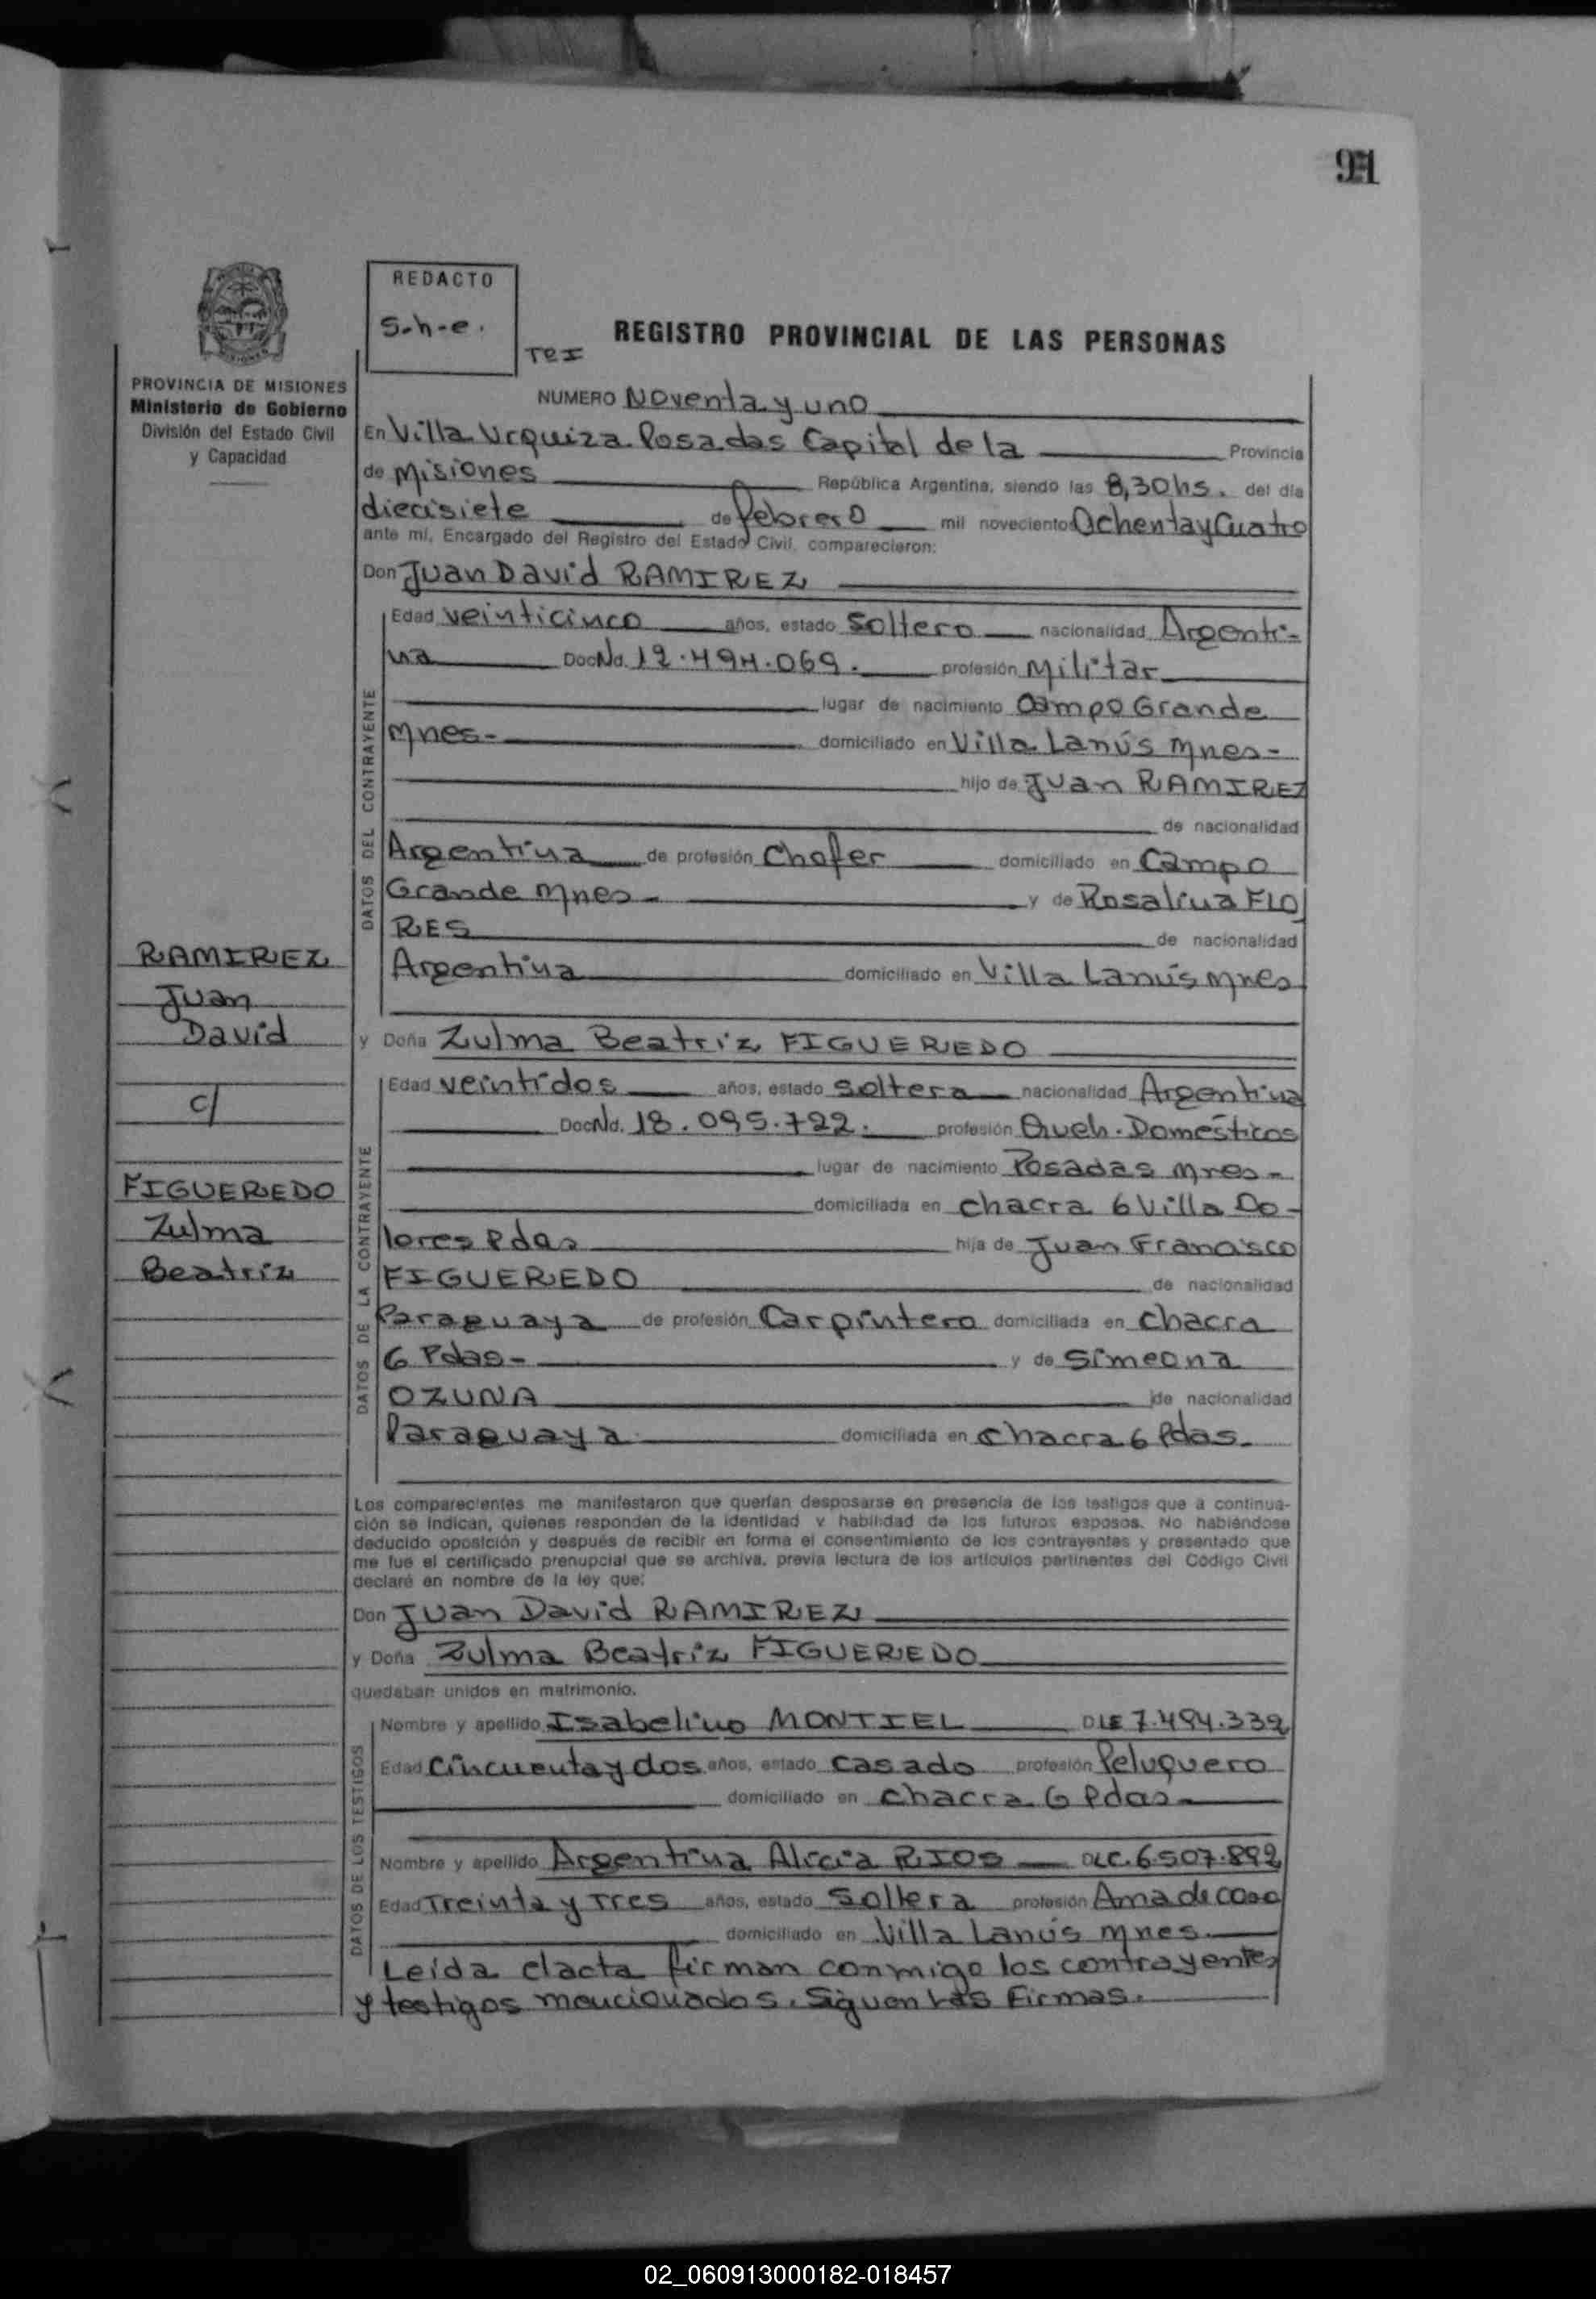 91
REDACTO
S-h-e.
TeI
REGISTRO PROVINCIAL DE LAS PERSONAS
PROVINCIA DE MISIONES
Ministerio de Gobierno
División del Estado Civil
y Capacidad
NUMERO Noventa y uno
En Villa Urquiza Posadas Capital de la Provincia
de Misiones República Argentina, siendo las 8,30hs. del día
diecisiete de febrero mil novecientos Ochenta y Cuatro
ante mí, Encargado del Registro del Estado Civil, comparecieron:
Don Juan David RAMIREZ
DATOS DEL CONTRAYENTE
Edad veinticinco años, estado soltero nacionalidad Argenti-
na Doc No. 12.494.069. profesión Militar
lugar de nacimiento Campo Grande
Mnes- domiciliado en Villa Lanús Mnes-
hijo de Juan RAMIREZ
de nacionalidad
Argentina de profesión Chofer domiciliado en Campo
Grande Mnes- y de Rosalina FLO
RES de nacionalidad
Argentina domiciliado en Villa Lanús Mnes
RAMIREZ
Juan
David
c/
FIGUEREDO
Zulma
Beatriz
y Doña Zulma Beatriz FIGUEREDO
DATOS DE LA CONTRAYENTE
Edad veintidos años, estado soltera nacionalidad Argentina
Doc No. 18.095.722. profesión Queh. Domésticos
lugar de nacimiento Posadas Mnes-
domiciliada en chacra 6 Villa Do-
lores Pdas hija de Juan Francisco
FIGUEREDO de nacionalidad
Paraguaya de profesión Carpintero domiciliada en chacra
6 Pdas- y de Simeona
OZUNA de nacionalidad
Paraguaya domiciliada en chacra 6 Pdas.
Los comparecientes me manifestaron que querían desposarse en presencia de los testigos que a continua-
ción se indican, quienes responden de la identidad y habilidad de los futuros esposos. No habiéndose
deducido oposición y después de recibir en forma el consentimiento de los contrayentes y presentado que
me fue el certificado prenupcial que se archiva, previa lectura de los artículos pertinentes del Código Civil
declaré en nombre de la ley que:
Don Juan David RAMIREZ
y Doña Zulma Beatriz FIGUEREDO
quedaban unidos en matrimonio.
DATOS DE LOS TESTIGOS
Nombre y apellido Isabelino MONTIEL DLE 7.494.339
Edad Cincuenta y dos años, estado casado profesión Peluquero
domiciliado en chacra 6 Pdas-
Nombre y apellido Argentina Alicia RIOS DLC. 6.507.892
Edad Treinta y Tres años, estado Soltera profesión Ama de casa
domiciliado en Villa Lanús Mnes.
Leida el acta firman conmigo los contrayentes
y testigos mencionados. Siguen las Firmas.
02_060913000182-018457